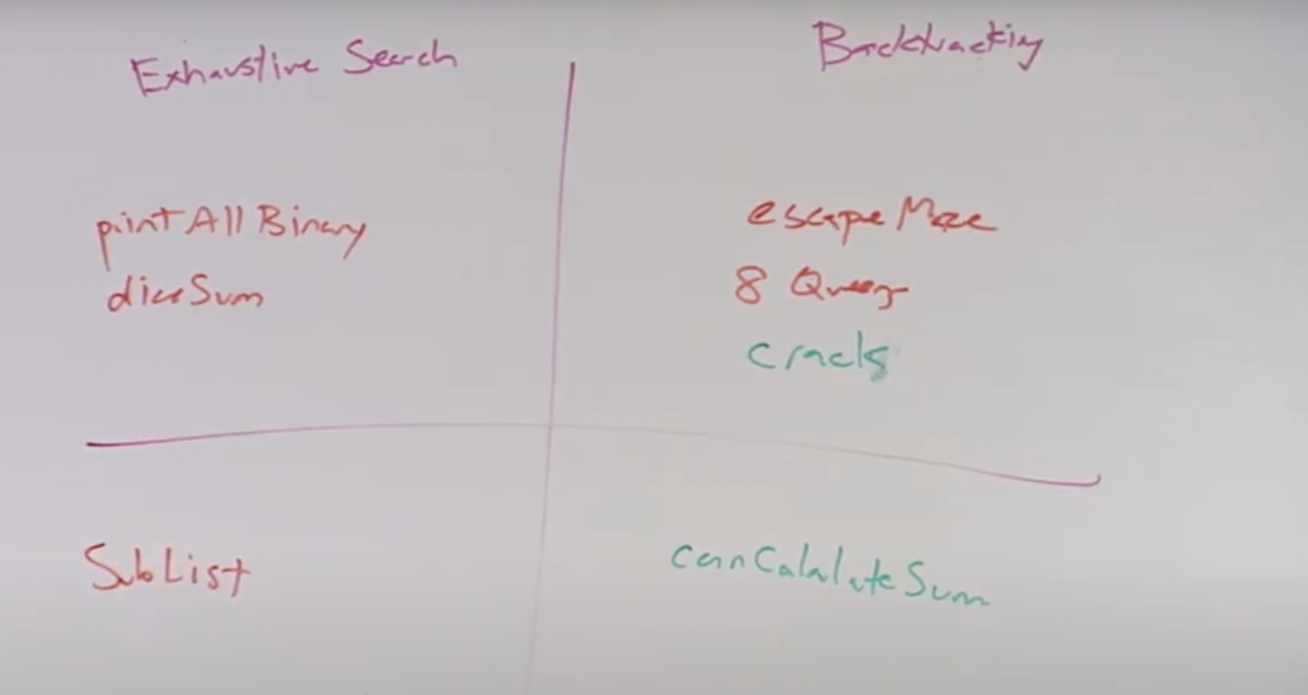 Exhaustive Search
Backtracking
printAllBinary
diceSum
escapeMaze
8 Queens
crack
SubList
canCalculateSum